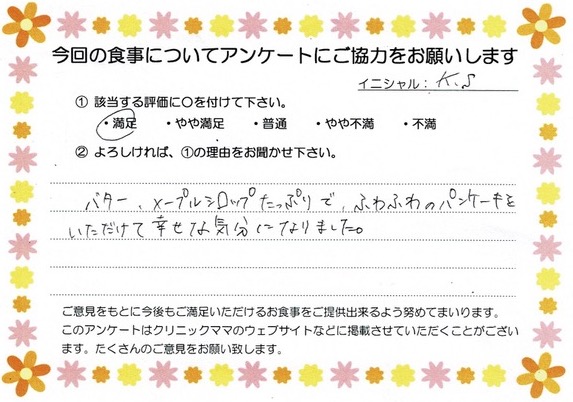 今回の食事についてアンケートにご協力をお願いします
イニシャル：K.S
① 該当する評価に○を付けて下さい。
・満足 ・やや満足 ・普通 ・やや不満 ・不満
② よろしければ、①の理由をお聞かせ下さい。
バター、メープルシロップたっぷりで、ふわふわのパンケーキを
いただけて幸せな気分になりました。
ご意見をもとに今後もご満足いただけるお食事をご提供出来るよう努めてまいります。
このアンケートはクリニックママのウェブサイトなどに掲載させていただくことがござい
ます。たくさんのご意見をお願い致します。